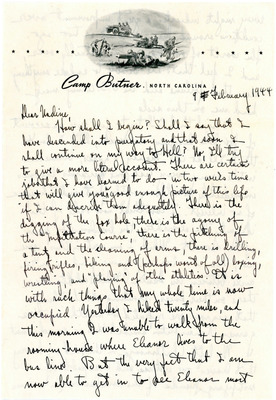 Camp Butner, NORTH CAROLINA
9 February 1944
Dear Nadine,
How shall I begin? Shall I say that I
have descended into purgatory and that soon I
shall continue on my way to Hell? No, I'll try
to give a more literal account. There are certain
jobs that I have learned to do in two week's time
that will give you a good enough picture of this life
if I can describe them adequately. There is the
digging of the fox hole, there is the agony of
the "infiltration course" there is the pitching of
a tent and the cleaning of arms, there is drilling,
firing rifles, hiking and (perhaps worst of all) boxing,
wrestling and "playing" of the athletics. It is
with such things that my whole time is now
occupied. Yesterday I hiked twenty miles, and
this morning I was unable to walk from the
rooming-house where Eleanor lives to the
bus line. But the very fact that I am
now able to get in to see Eleanor most